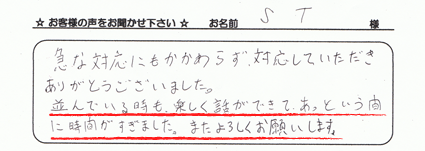 ☆ お客様の声をお聞かせ下さい ☆ お名前 S T 様
急な対応にもかかわらず、対応していただき
ありがとうございました。
並んでいる時も、楽しく話ができて、あっという間
に時間がすぎました。またよろしくお願いします。